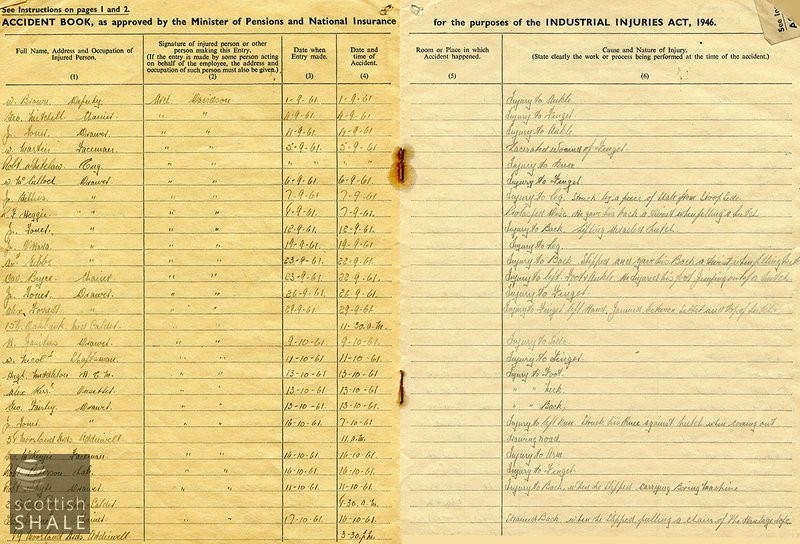 See Instructions on pages 1 and 2.
ACCIDENT BOOK, as approved by the Minister of Pensions and National Insurance for the purposes of the INDUSTRIAL INJURIES ACT, 1946.
Full Name, Address and Occupation of Injured Person.
(1)
Signature of injured person or other person making this Entry.
(If the entry is made by some person acting on behalf of the employee, the address and occupation of such person must also be given.)
(2)
Date when Entry made.
(3)
Date and time of Accident.
(4)
Room or Place in which Accident happened.
(5)
Cause and Nature of Injury.
(State clearly the work or process being performed at the time of the accident.)
(6)
W. Brown. Deputy Davidson 1-9-61. 1-9-61. Injury to Ankle
Geo. Mitchell " " 4-9-61. 4-9-61. Injury to Finger.
J. Jones. Drawer. " " 4-9-61. 4-9-61. Injury to Ankle
W. Martin Faceman. " " 5-9-61. 5-9-61. Lacerated wound of Finger.
Robt. Whitelaw. " " " " Injury to
W. McCulloch Drawer " " 6-9-61. 6-9-61. Injury to Finger
J. Gillies. " " " 7-9-61. 7-9-61. Injury to Leg. Struck by a piece of Shale from side.
" " " 7-9-61. He gave his back a twist when filling a hutch.
J. Jones. " " " 12-9-61. 12-9-61. Injury to Back. Lifting hutch.
J. O'Hara. " " " 19-9-61. 19-9-61. Injury to Leg.
" " " 23-9-61. 22-9-61. Injury to Back. Slipped and gave his Back a twist when filling
Bryce. " " 23-9-61. 22-9-61. Injury to left Foot & Ankle. He injured his foot jumping out of a hutch.
J. Jones. Drawer. " " 26-9-61. 26-9-61. Injury to Finger.
Alex. Forrest " " " 29-9-61. 29-9-61. Injury to Finger left Hand. Jammed between and top of hutch.
Oakbank. Mid Calder. 11-30.a.m.
Drawer. " " 9-10-61. 9-10-61. Injury to Side.
W. Nicol. Shaftsman. " " 11-10-61. 11-10-61. Injury to Finger.
Hugh Middleton " " 13-10-61. 13-10-61. Injury to Foot.
Alex " " 13-10-61. 13-10-61. " " Neck
Geo. Fairley. Drawer. " " 13-10-61. 13-10-61. " " Back.
J. Jones. " " " 16-10-61. 7-10-61. Injury to left knee. Struck his Knee against hutch when coming out
34 Moorland Rds. Addiewell 11.a.m. road.
McKenzie Faceman " " 16-10-61. 16-10-61. Injury to Arm.
" " 16-10-61. 16-10-61. Injury to Finger.
Robt. Whyte. Drawer " " 11-10-61. 11-10-61. Injury to Back when he slipped carrying Boring machine
Calder 9.30.a.m.
" " 17-10-61. 16-10-61. Strained Back when he slipped pulling a chain of the Haulage rope.
19 Moorland Rds. Addiewell 3-30.pm.
scottish
SHALE